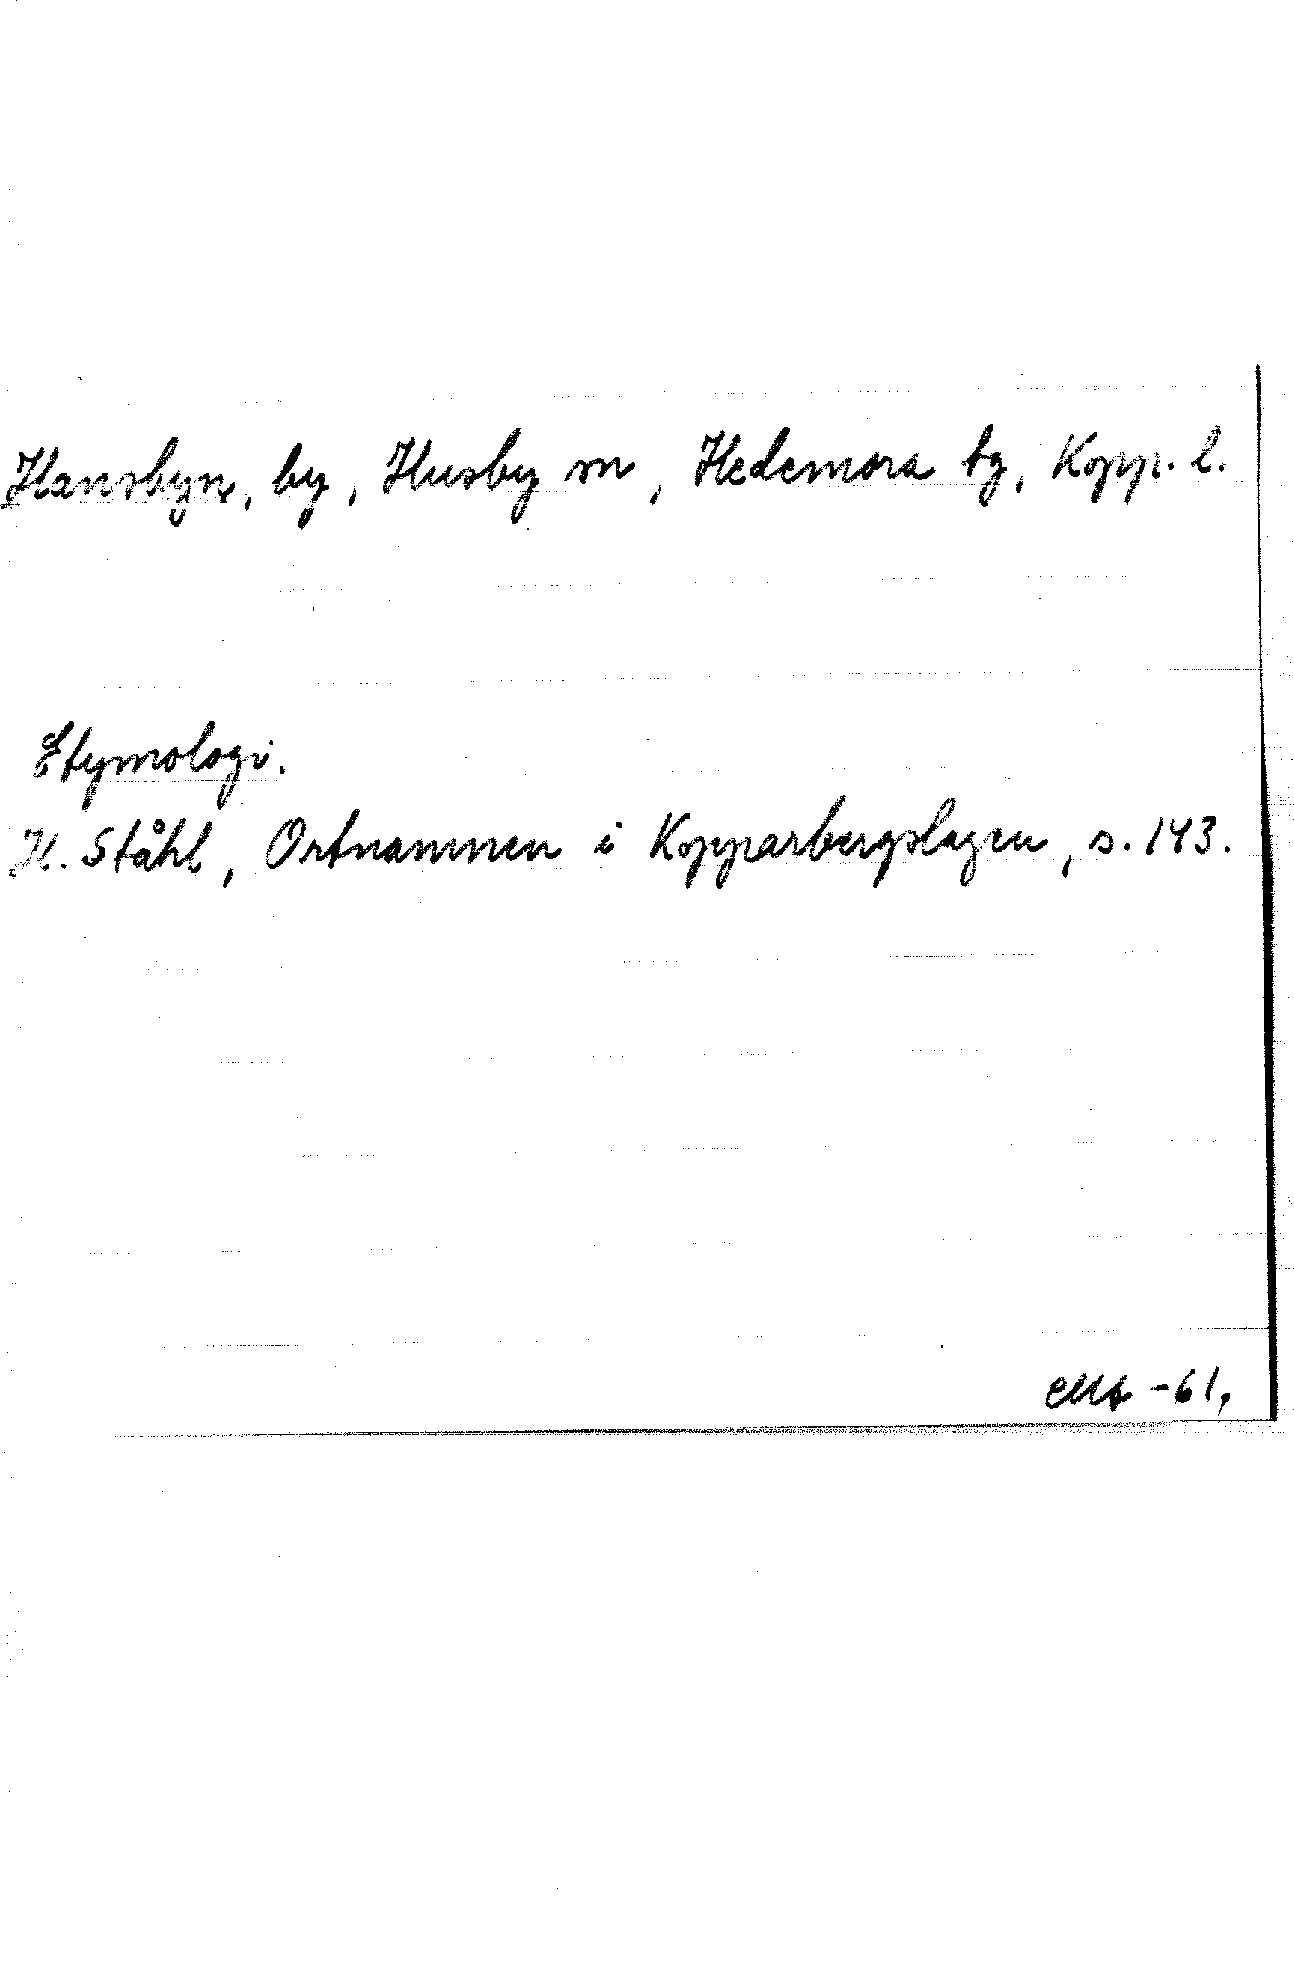 Hansbyn, by, Husby sn, Hedemora tg, Kopp. l.
Etymologi.
H. Ståhl, Ortnamnen i Kopparbergslagen, s. 143.
-61.